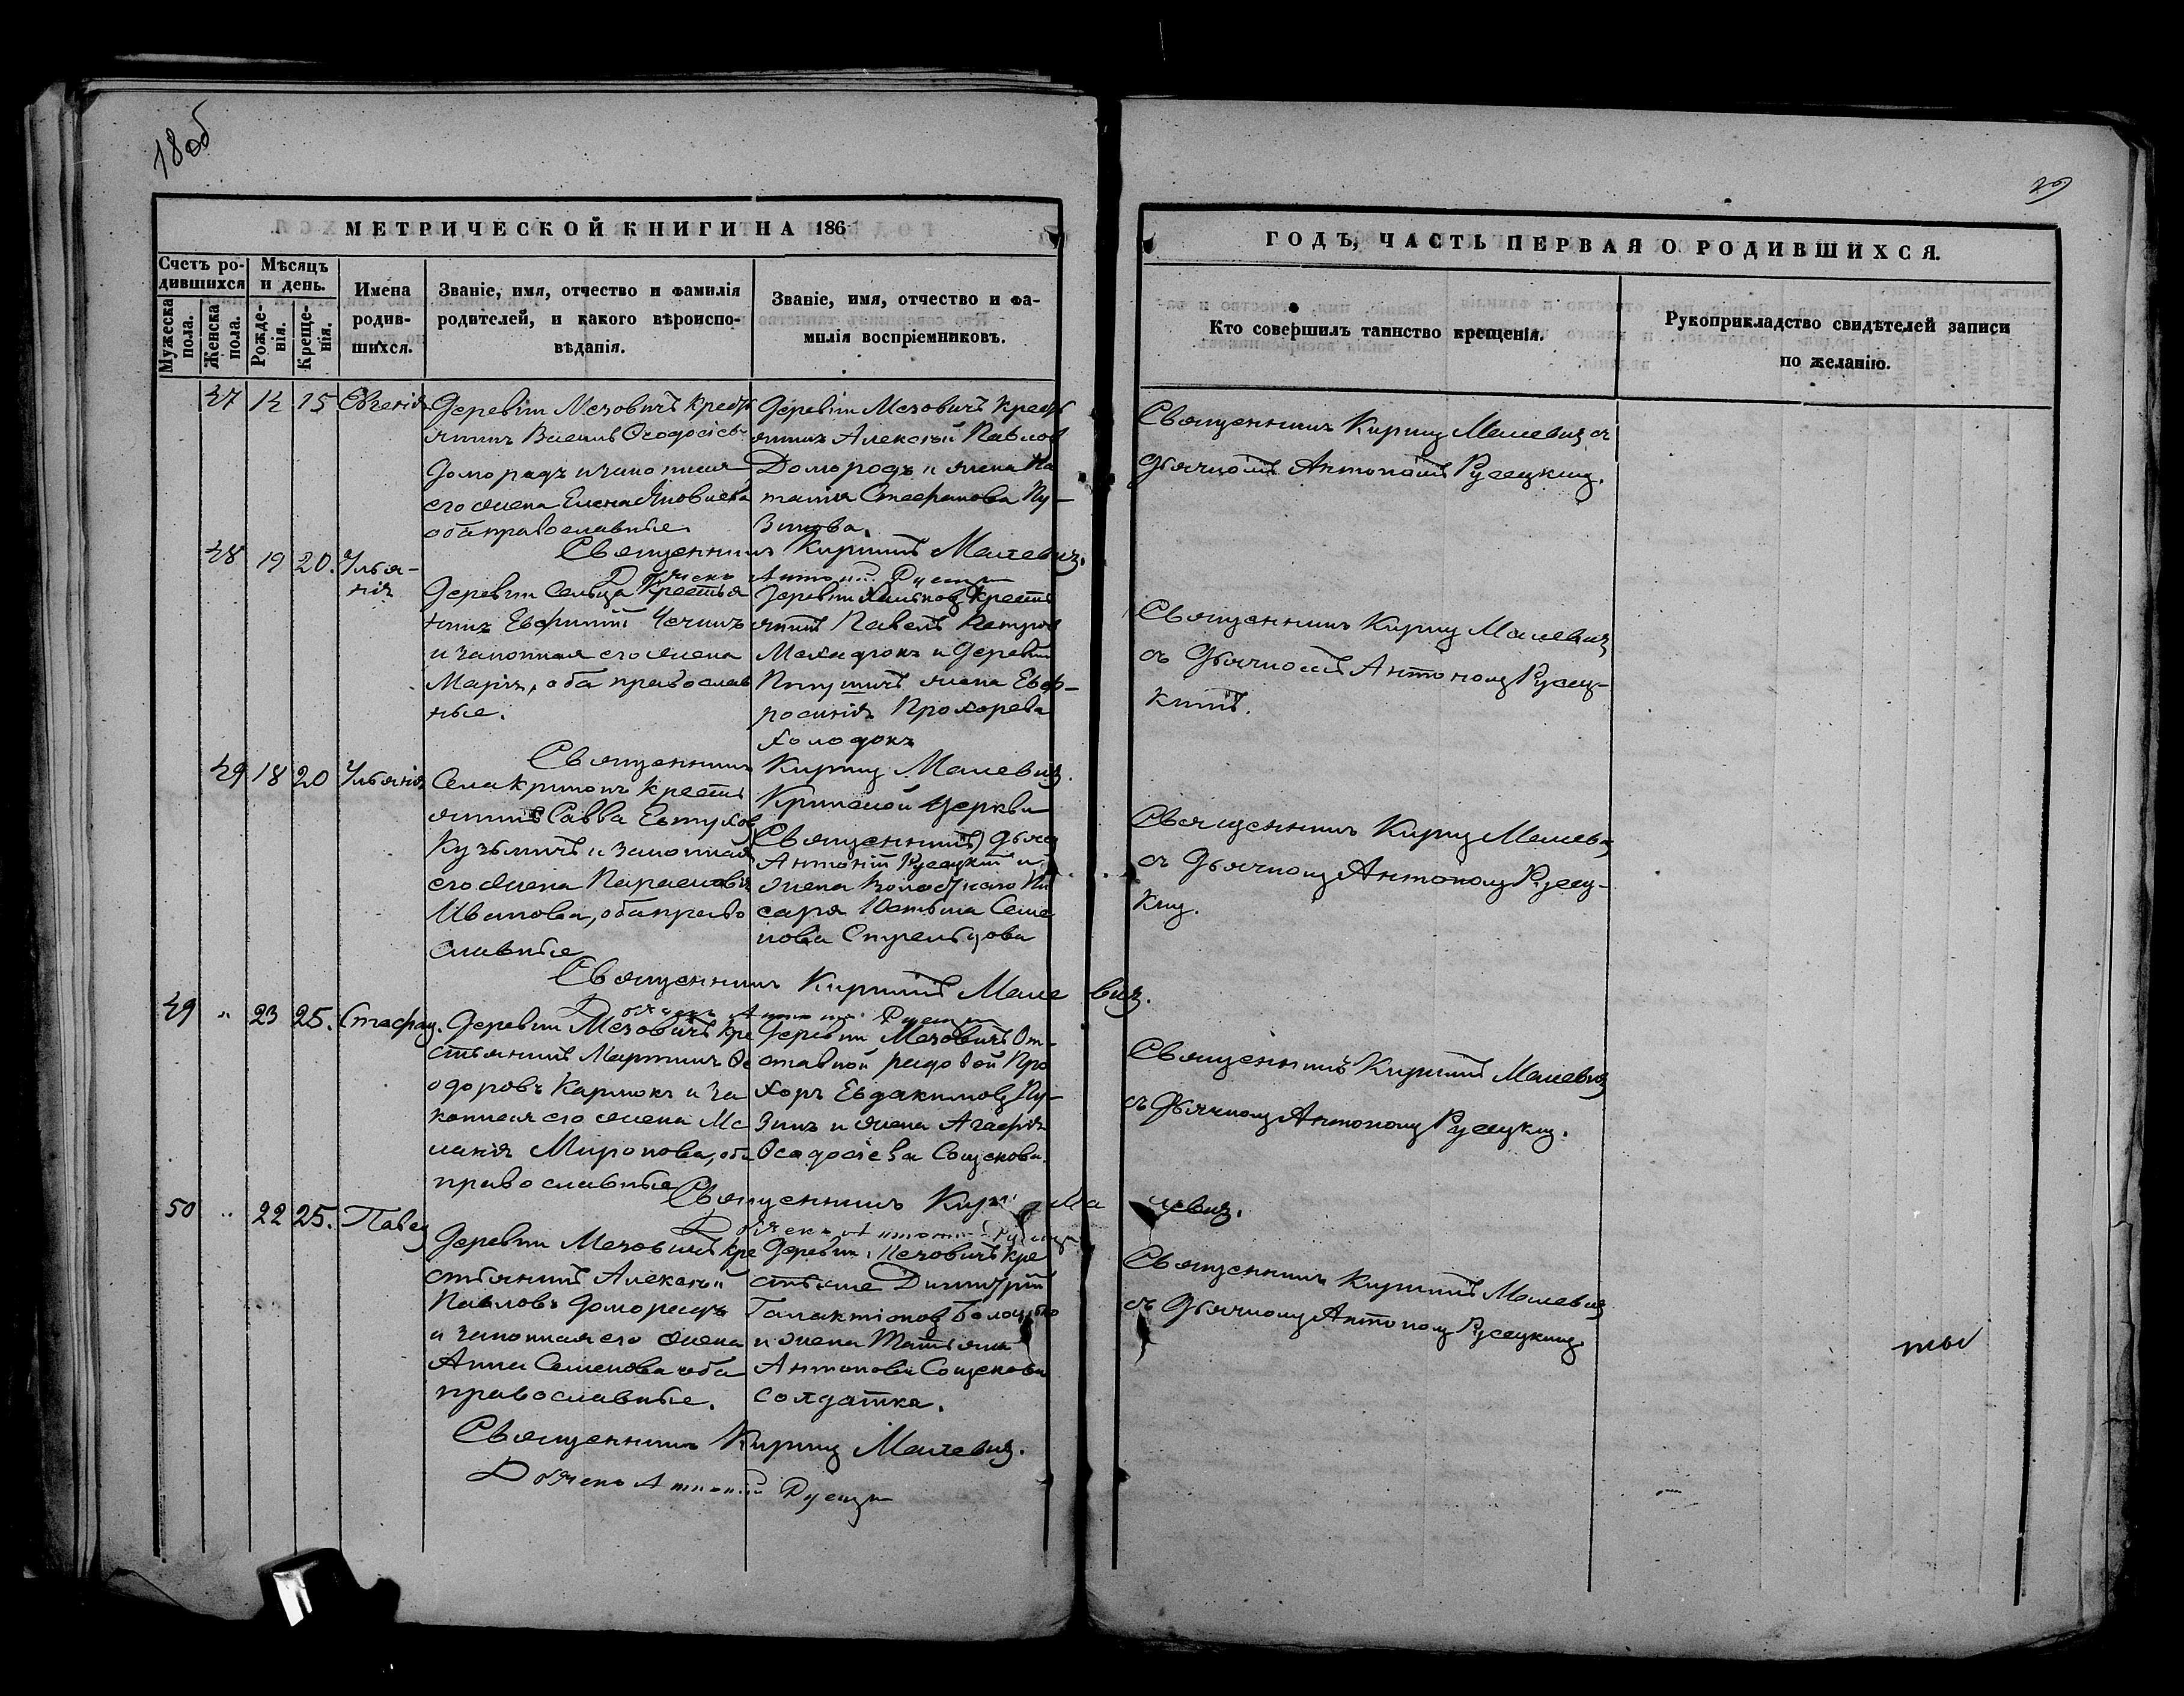 18 об
29
МЕТРИЧЕСКОЙ КНИГИ НА 186
ГОДЪ, ЧАСТЬ ПЕРВАЯ О РОДИВШИХСЯ.
Счетъ родившихся
Мужеска пола.
Женска пола.
Мѣсяцъ и день.
Рожденія.
Крещенія.
Имена родившихся.
Званіе, имя, отчество и фамилія
родителей, и какого вѣроиспо-
вѣданія.
Званіе, имя, отчество и фа-
милія воспріемниковъ.
Кто совершилъ таинство крещенія.
Рукоприкладство свидѣтелей записи
по желанію.
47 14 15 Евгенія
Деревни Мезовичъ крестъ
янинъ Василь Ѳеодосіевъ
Доморадъ и законная
его жена Елена Яковлева
оба православные
Деревни Мезовичъ крестъ
янинъ Алексѣй Павлов
Домородъ и жена На
талія Стефанова Пу-
зикова.
Священникъ Кирилъ Малевич съ
дьячкомъ Антономъ Русецким.
Священникъ Кириллъ Малевич.
Дьячекъ Антоній Русецки
48 19 20. Ульянія
Деревни Сельца Крестья
нинъ Евфимій Чечикъ
и законная его жена
Марія, оба православ
ные.
Деревни крестъ
янинъ Павелъ Петров
и деревни
жена Евф-
росинія Прохорева
Холодокъ
Священникъ Кирил Малевич
съ Дьячкомъ Антоном Русец-
кимъ.
Священникъ Кирил Малевич.
49 18 20 Ульянія
Села Крупокъ крестъ
янинъ Савва Евтухов
Кузьмичъ и законная
его жена Параскевія
Иванова, оба право
славные
Церкви
Священникъ, дьячек
Антоній Русецкій и
жена волостнаго пи
саря Юстына Семе
нова Стрельцова
Священникъ Кирил Малевич
съ дьячком Антоном Русец-
ким.
Священникъ Кириллъ Малевич.
Дьячекъ Антоній Русецки
49 „ 23 25. Стефан.
Деревни Мезовичъ кре
стьянинъ Мартинъ Ѳе
одоровъ Карпокъ и за
конная его жена Ме
ланія Миронова, оба
православные
Деревни Мезовичъ От-
ставной рядовой Про
хоръ Евдакимов Пу-
зикъ и жена Агафія
Ѳеодосіева Сощекова.
Священникъ Кириллъ Малевич
съ дьячком Антоном Русецким.
Священникъ Кирил Малевич.
Дьячекъ Антоній Русецки
50 „ 22 25. Павел
Деревни Мезовичъ кре
стьянинъ Алексѣй
Павловъ Доморадъ
и законная его жена
Анна Семенова оба
православные.
Деревни Мезовичъ кре
стьяне Димитрій
Галактіонов
и жена Татьяна
Антонова Сощекова
солдатка.
Священникъ Кириллъ Малевич
съ дьячком Антоном Русецким
Священникъ Кирил Малевич.
Дьячекъ Антоній Русецки